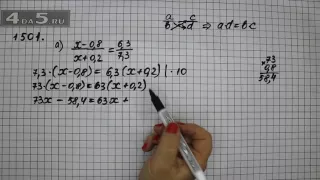 4DA5.RU
1501.
а) x-0,8 / x+0,2 = 6,3 / 7,3
a/b = c/d ⇒ a·d=b·c
7,3·(x-0,8) = 6,3(x+0,2) |·10
73·(x-0,8)=63(x+0,2)
73x - 58,4 = 63x +
×73
0,8
58,4